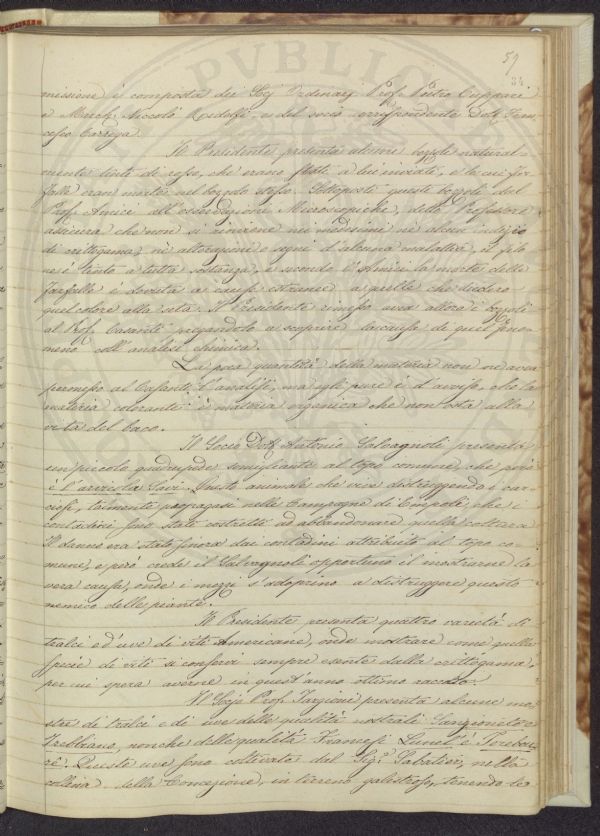 59
34
missione è composta dei Socj Ordinarj Prof. Pietro Cuppari
e March. Niccolò Ridolfi, e del socio corrispondente Dott. Fran
cesco Carrega
Il Presidente presenta alcuni bozzoli natural-
mente tinti di rosso, che erano stati a lui inviati, e le cui far
falle eran morte nel bozzolo stesso. Sottoposti questi bozzoli dal
Prof. Amici all'osservazione Microscopiche, detto Professore
assicura che non si rinviene nei medesimi nè alcun indizio
di crittogama, nè alterazioni o segni d'alcuna malattia, il filo
ne è tinto a tutta sostanza, e secondo l'Amici la morte delle
Farfalle è dovuta a cause estranee a quelle che diedero
quel colore alla seta. Il Presidente rimesse allora i bozzoli
al Prof. Casanti pregandolo a scoprire la causa di quel feno
meno coll'analisi chimica.
La poca quantità della materia non ne avea
permesso al Casanti l'analisi, ma egli pure è d'avviso, che la
materia colorante è materia organica che non osta alla
vita del baco.
Il Socio Dott. Antonio Salvagnoli presenta
un piccolo quadrupede somigliante al topo comune, che però
è l'arvicola Savi. Questo animale che vive distruggendo i car
ciofi, talmente propagasi nelle Campagne di Empoli, che i
contadini sono stati costretti ad abbandonare quella coltura
Il danno era stato finora dai contadini attribuito al topo co
mune, e però crede il Salvagnoli opportuno il mostrarne la
vera causa, onde i mezzi s'adoprino a distruggere questo
nemico delle piante.
Il Presidente presenta quattro varietà di
tralci e d'uve di viti Americane, onde mostrare come quella
specie di viti si conservi sempre esente dalla crittogama,
per cui spera averne in quest'anno ottimo raccolto.
Il Socio Prof. Targioni presenta alcune mo
stre di tralci e di uve delle qualità nostrali Sangioveto e
Trebbiano, nonchè delle qualità Francesi Lunel è
Queste uve sono coltivate dal Sig. Sabatier, nella
collina della Concezione, in terreno galestroso, tenendo le